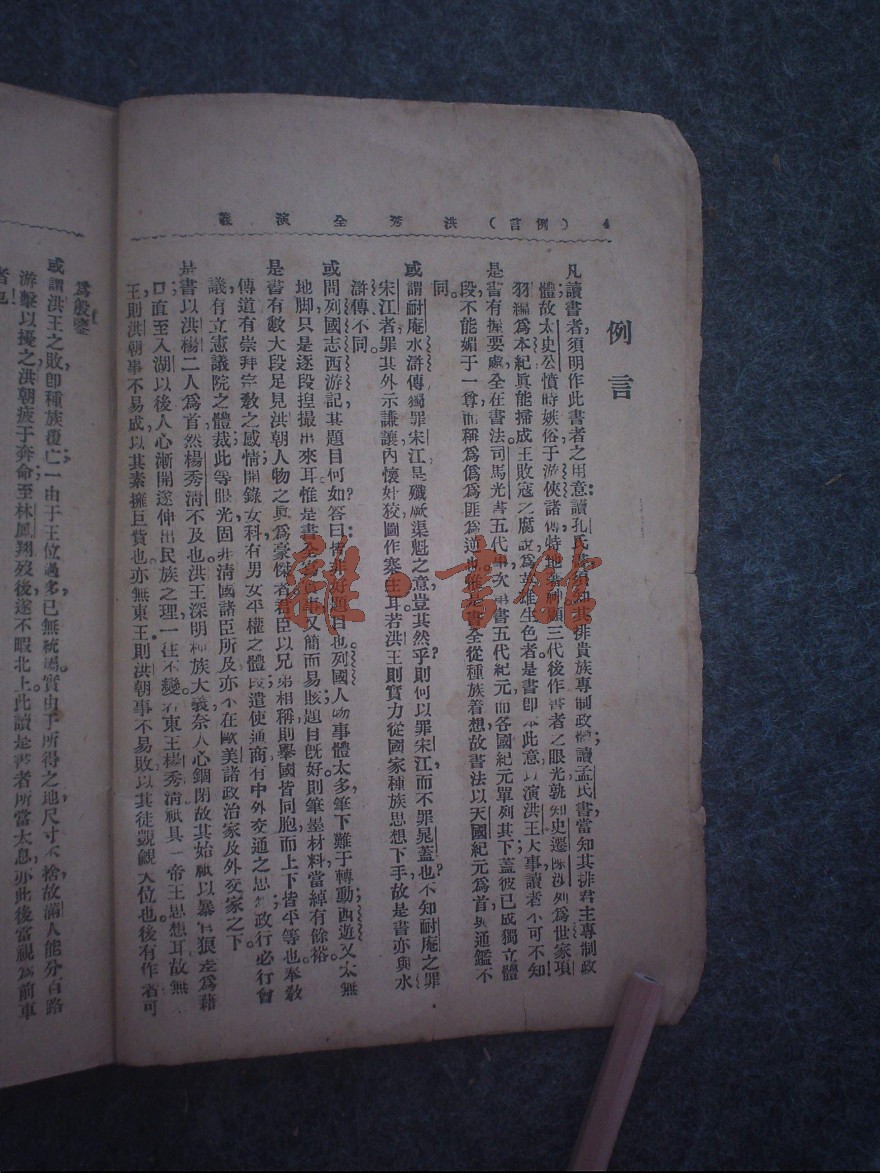 4 （例言） 洪秀全演義
例言
凡讀書者，須明作此書者之用意；讀孔氏書，須知其排貴族專制政體；讀孟氏書，當知其排君主專制政
體；故太史公憤時嫉俗，于游俠諸傳，特地著神。顧三代後作書者之眼光，孰如史遷？陳涉列爲世家，項
羽編爲本紀，眞能掃成王敗寇之腐說，爲英雄生色者。是書卽本此意，以演洪王大事，讀者不可不知！
是書有握要處，全在書法。司馬光書五代事，次第書五代紀元，而各國紀元單列其下，蓋彼已成獨立體
段，不能媚于一尊，而稱爲僞爲匪爲逆也。惟是書全從種族着想，故書法以天國紀元爲首，與通鑑不
同。
或謂耐庵水滸傳獨罪宋江，是殲厥渠魁之意，豈其然乎？則何以罪宋江而不罪晁蓋也？不知耐庵之罪
宋江者，罪其外示謙讓，內懷奸狡，圖作寨主耳。若洪王則實力從國家種族思想下手，故是書亦與水
滸傳不同。
或問列國志西游記其題目何如？答曰：皆非好題目也。列國人物事體太多，筆下難于轉動；西遊又太無
地脚，只是逐段揑撮出來耳。惟是書 又簡而易賅，題目旣好，則筆墨材料當綽有餘裕。
是書有數大段足見洪朝人物之眞爲豪傑者：君臣以兄弟相稱，則舉國皆同胞，而上下皆平等也；奉敎
傳道，有崇拜宗敎之感情；開錄女科，有男女平權之體段；遣使通商，有中外交通之思；政行必行會
議，有立憲議院之體裁。此等眼光，固非淸國諸臣所及，亦不在歐美諸政治家及外交家之下
是書以洪楊二人爲首，然楊秀淸不及也。洪王深明種族大義，奈人心錮閉，故其始祇以暴官狼差爲藉
口；直至入湖以後，人心漸開，遂伸出民族之理，一往不變。若東王楊秀淸，祇具一帝王思想耳。故無
王，則洪朝事不易成，以其素擁巨貲也；亦無東王，則洪朝事不易敗，以其徒覬覦大位也。後有作者，可
爲殷鑒
或謂洪王之敗，卽種族覆亡：一由于王位過多，已無統屬。實由于所得之地，尺寸不捨，故滿人能分百路
游擊以擾之，洪朝疲于奔命，至林鳳翔歿後，遂不暇北上。此讀是書者所當太息，亦此後當視爲前車
者也！
雜·書館